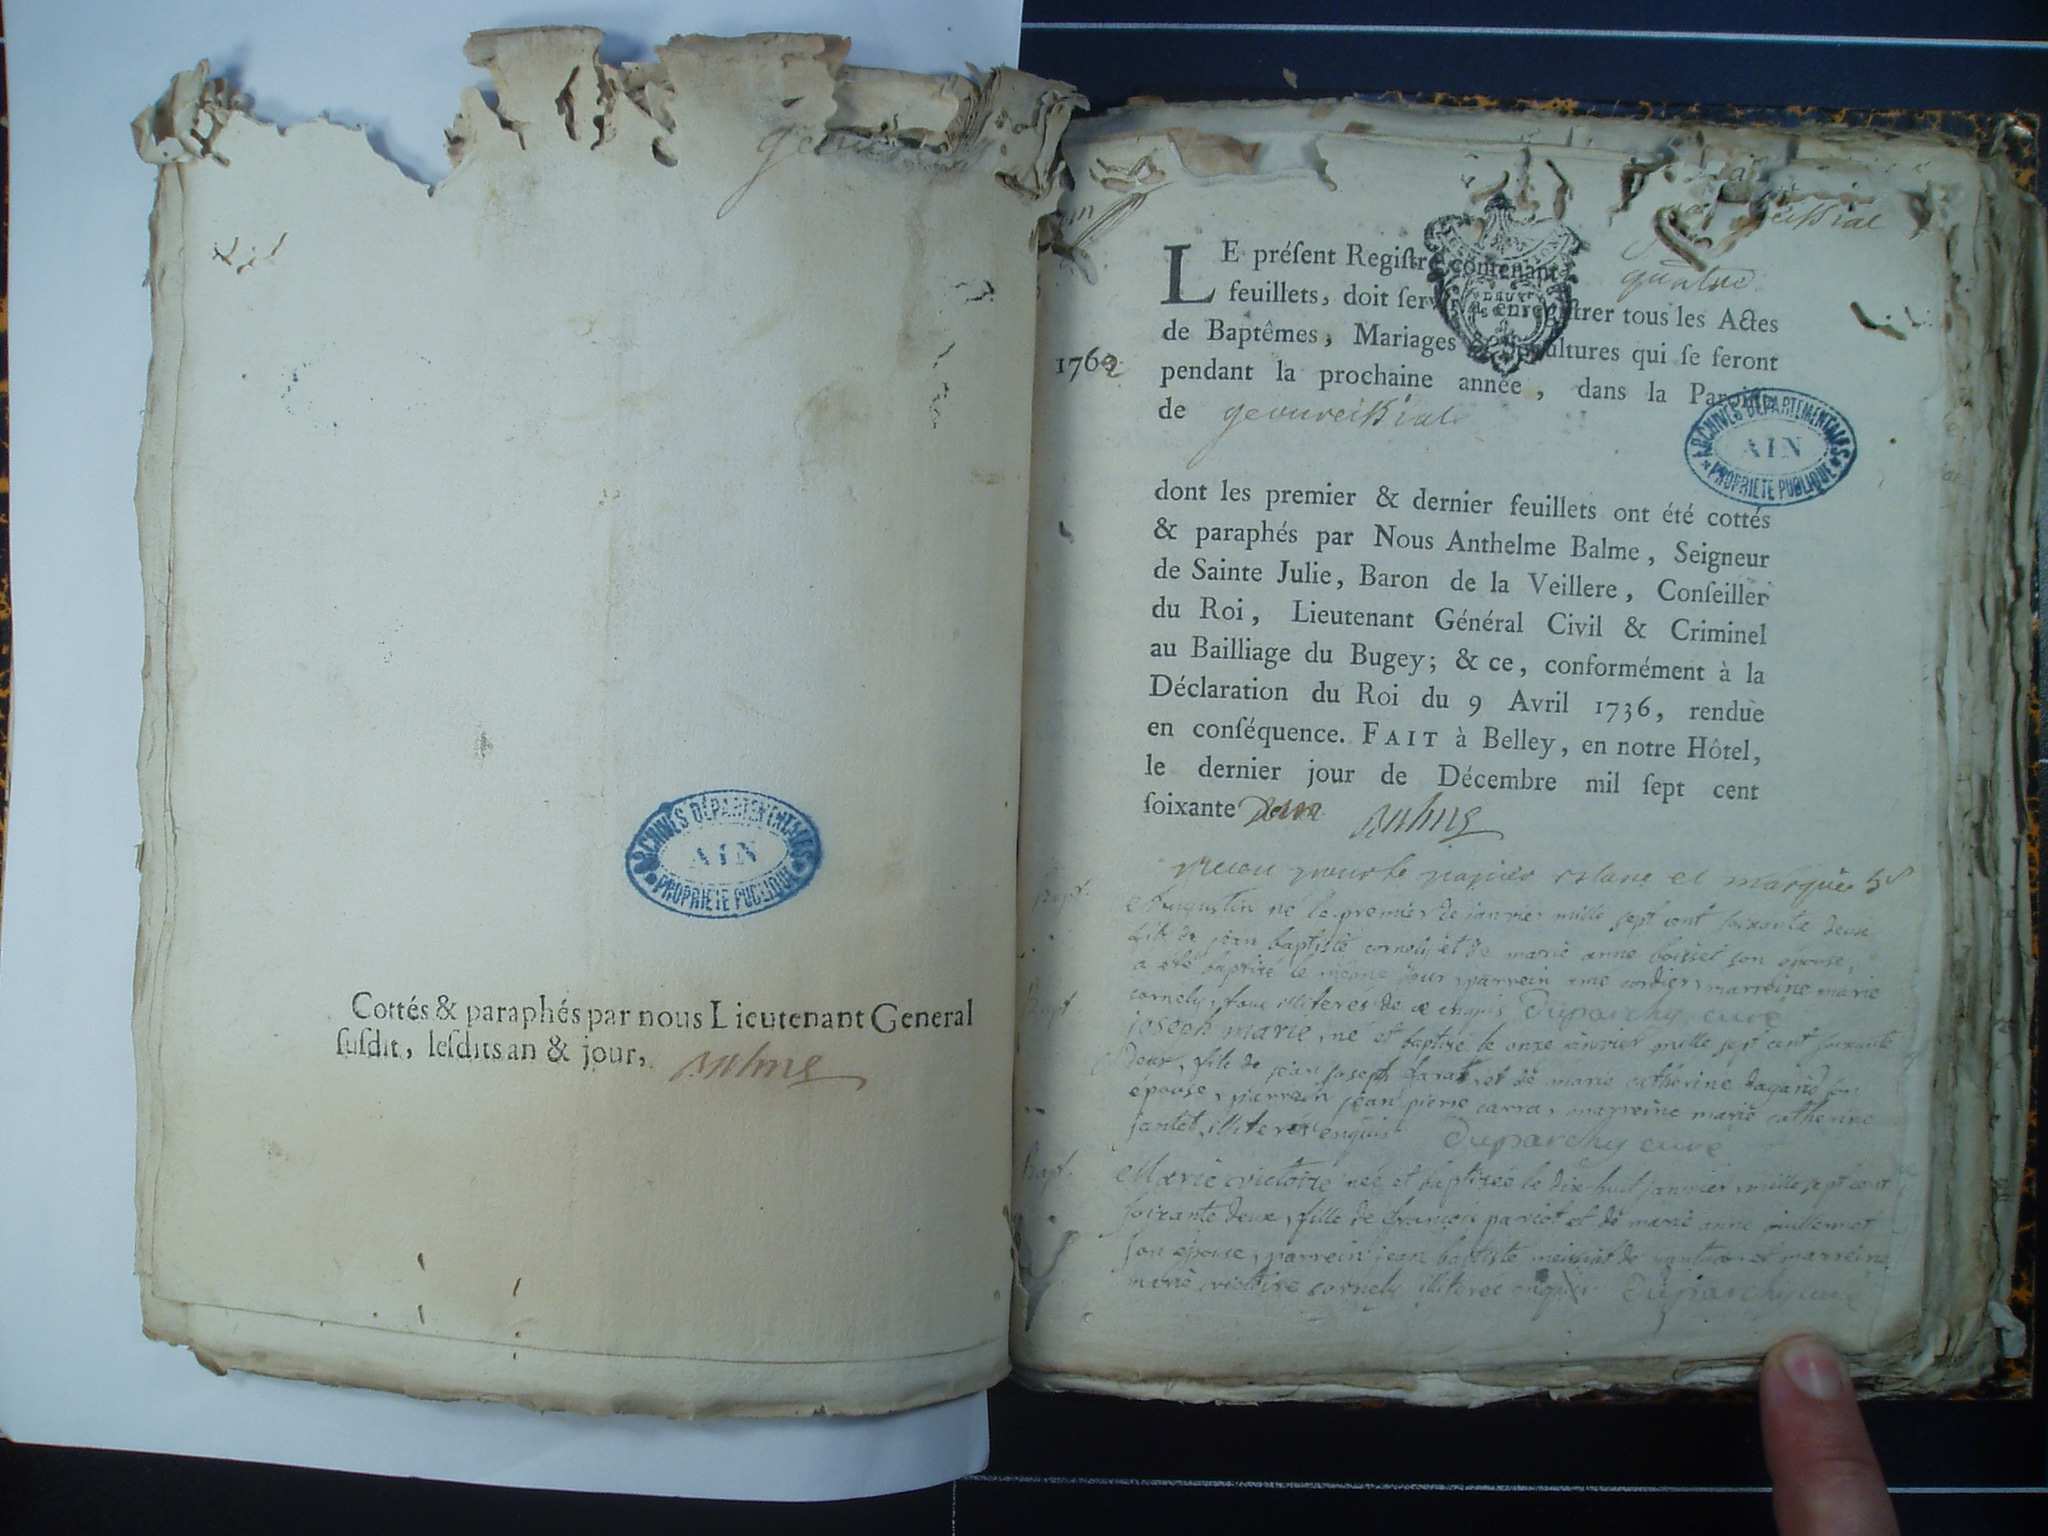 ARCHIVES DÉPARTEMENTALES
AIN
PROPRIÉTÉ PUBLIQUE
Cottés & paraphés par nous Lieutenant General
ſuſdit, leſdits an & jour, Balme
LE préſent Regiſtre contenant quatre
feuillets, doit ſervir à enregiſtrer tous les Actes
de Baptêmes, Mariages & Sépultures qui ſe feront
1762
pendant la prochaine année, dans la Paroiſſe
de geovreissiat
ARCHIVES DÉPARTEMENTALES
AIN
PROPRIÉTÉ PUBLIQUE
dont les premier & dernier feuillets ont été cottés
& paraphés par Nous Anthelme Balme, Seigneur
de Sainte Julie, Baron de la Veillere, Conſeiller
du Roi, Lieutenant Général Civil & Criminel
au Bailliage du Bugey; & ce, conformément à la
Déclaration du Roi du 9 Avril 1736, rendue
en conſéquence. FAIT à Belley, en notre Hôtel,
le dernier jour de Décembre mil ſept cent
ſoixante Deux Balme
pour le papier et marque
Bapt. Augustin né le premier de janvier mille sept cent soixante deux
fils de jean baptiste cornely et de marie anne boisset son epouse,
a été baptisé le même jour, parrein cordier, marreine marie
cornely, tous illiterés de ce enquis Duparchy curé
Bapt joseph marie, né et baptisé le onze janvier mille sept cent soixante
deux, fils de jean joseph et de marie catherine son
épouse, parrein jean pierre carra, marreine marie catherine
jantet, illiterés enquis Duparchy curé
Bapt. Marie victoire née et baptisée le dix huit janvier mille sept cent
soixante deux, fille de françois pariot et de marie anne
son épouse, parrein jean baptiste de et marreine
marie victoire cornely illiterée Duparchy curé